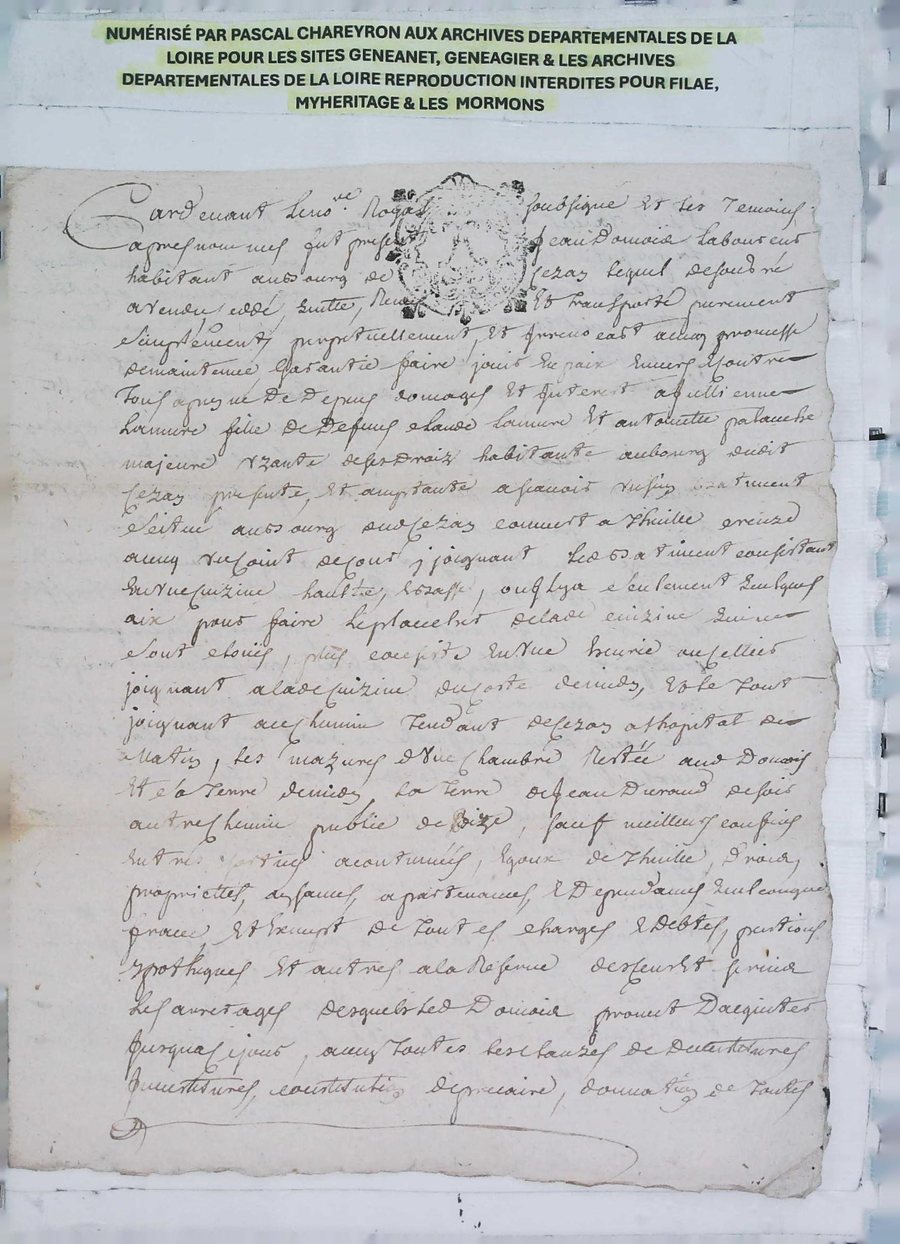 NUMÉRISÉ PAR PASCAL CHAREYRON AUX ARCHIVES DEPARTEMENTALES DE LA
LOIRE POUR LES SITES GENEANET, GENEAGIER & LES ARCHIVES
DEPARTEMENTALES DE LA LOIRE REPRODUCTION INTERDITES POUR FILAE,
MYHERITAGE & LES MORMONS
Pardevant le no.re Royal soubsigné Et les Temoins
apres nommes fut present Jean Domois laboureur
habitant au Bourg de Cezay lequel de son gré
a vendu, ceddé, quitte, Et transporté purement
simplement, perpetuellement, et avecq promesse
de maintenir garantir faire jouir en paix envers Contre
Tous a peyne De Depens domages Et Interest a
fille De Deffuns Claude Et antoinette palanche
majeure Uzante de ses Droiz habitante au bourg dudit
Cezay presente, Et acceptante ascavoir Batiment
scitué au Bourg dud Cezay couvert a Thuille
avecq de cour joignant led Batiment consistant
En une Cuizine haulte, Basse, ou il y a seulement quelques
aix pour faire le plancher de lad cuizine
sont plus consiste En une ou cellier
joignant a lad Cuizine du Costé de midy, Et le Tout
joignant au Chemin Tendant de Cezay a l'hopital de
matin, les mazures d'une Chambre Restée aud Domois
Et sa Terre de midy la Terre de Jean Durand de soir
autre Chemin public de Bize, sauf meilleurs confins
Entrés sorties acoutumées, Egoux de Thuille, Droiz,
proprietés, aysances, apartenances, & Dependances quelconques
franc, Et Exempt de Toutes charges & Debtes, pentions
ypotheques Et autres a la Reserve des cens Et servis
les arrerages desquels led Domois promet D'acquitter
jusqu'a ce jour, avecq Toutes les clauzes de Devestitures
Investitures, constitution de precaire, donnation de Toutes